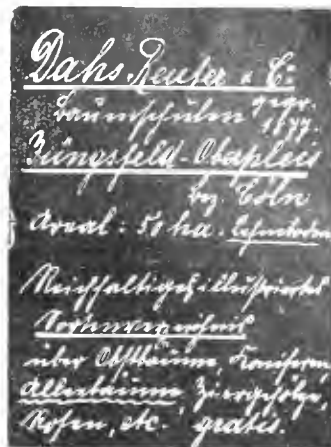 Dahs, Reuter & C:
Baumschulen gegr.
1877.
Jüngsfeld-Oberpleis
bez. Cöln
Areal: 50 ha. Lehmboden
Reichhaltiges illustriertes
Sortenverzeichnis
über Obstbäume, Koniferen,
Alleebäume, Ziergehölze,
Rosen, etc. gratis.